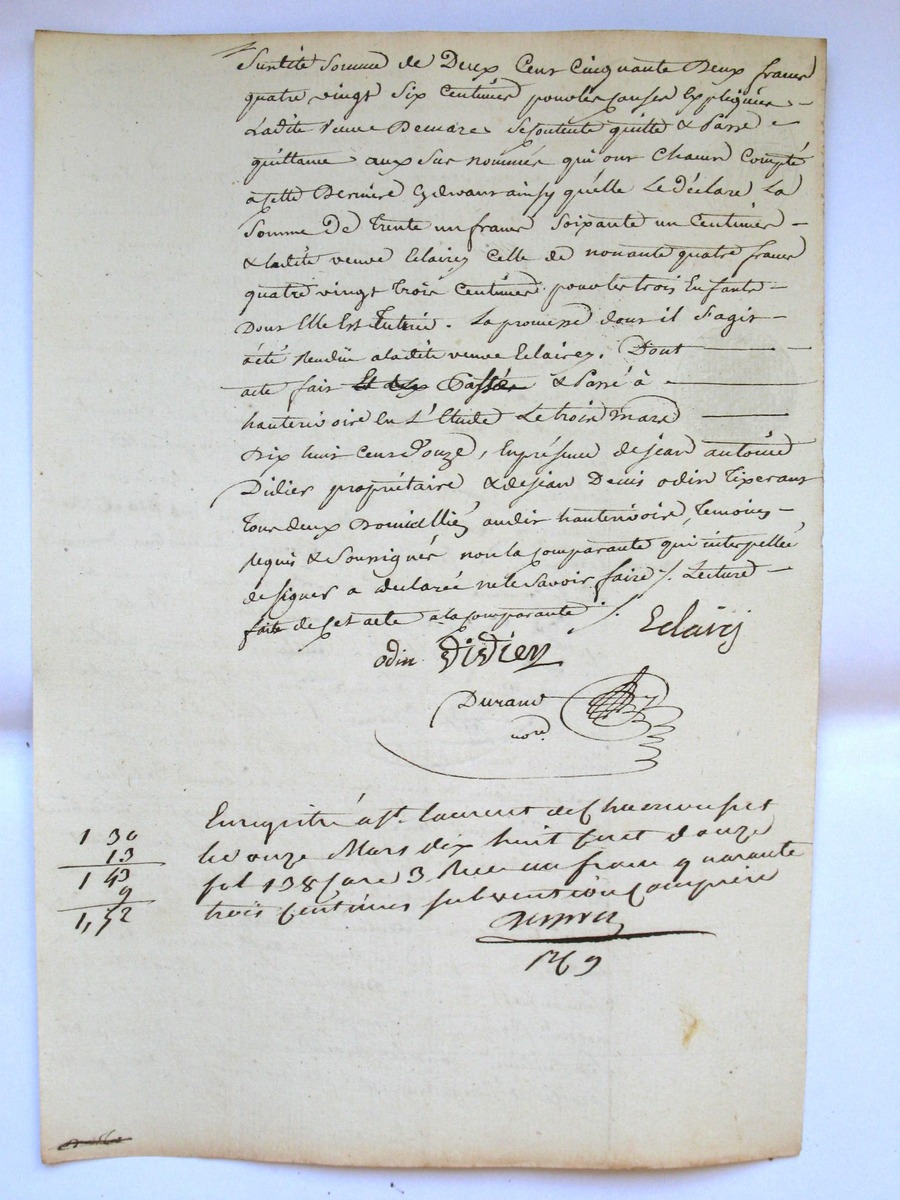 Susdite Somme de Deux Cent Cinquante Deux francs
quatre vingt Six Centimes pour les causes Expliquées -
Ladite veuve Demare Se contente quitte & Passe
quittance aux Sus nommés qui ont chacun Compté
a cette Derniere cydevant ainsy qu'elle Le Déclare La
Somme De Trente un francs Soixante un Centimes -
& ladite veuve Eclairey Celle de nonante quatre francs
quatre vingt Trois Centimes pour les trois Enfants -
Dont Elle Est Tutrice. La promesse dont il S'agit -
a été Rendüe a ladite veuve Eclairey. Dont
acte fait & Passé à
hauterivoire En L'Etude Le trois mars
Dix huit Cent Douze, En présence de jean antoine
Didier propriétaire & de jean Denis odin Tixerant
Tous deux Domicilliés audit hauterivoire, Temoins -
requis & Soussignés non la Comparante qui interpellée
de Signer a déclarée ne le Savoir faire ./. Lecture -
faite de cet acte a la comparante ./.
odin Didier Eclairey
Durand
nore.
Enregistré a St. laurent de Chamousset
le onze Mars dix huit Cent douze
fol 138 Case 3 Recu un franc quarante
trois Centimes subvention Comprise
1 30
13
1 43
9
1,52
169